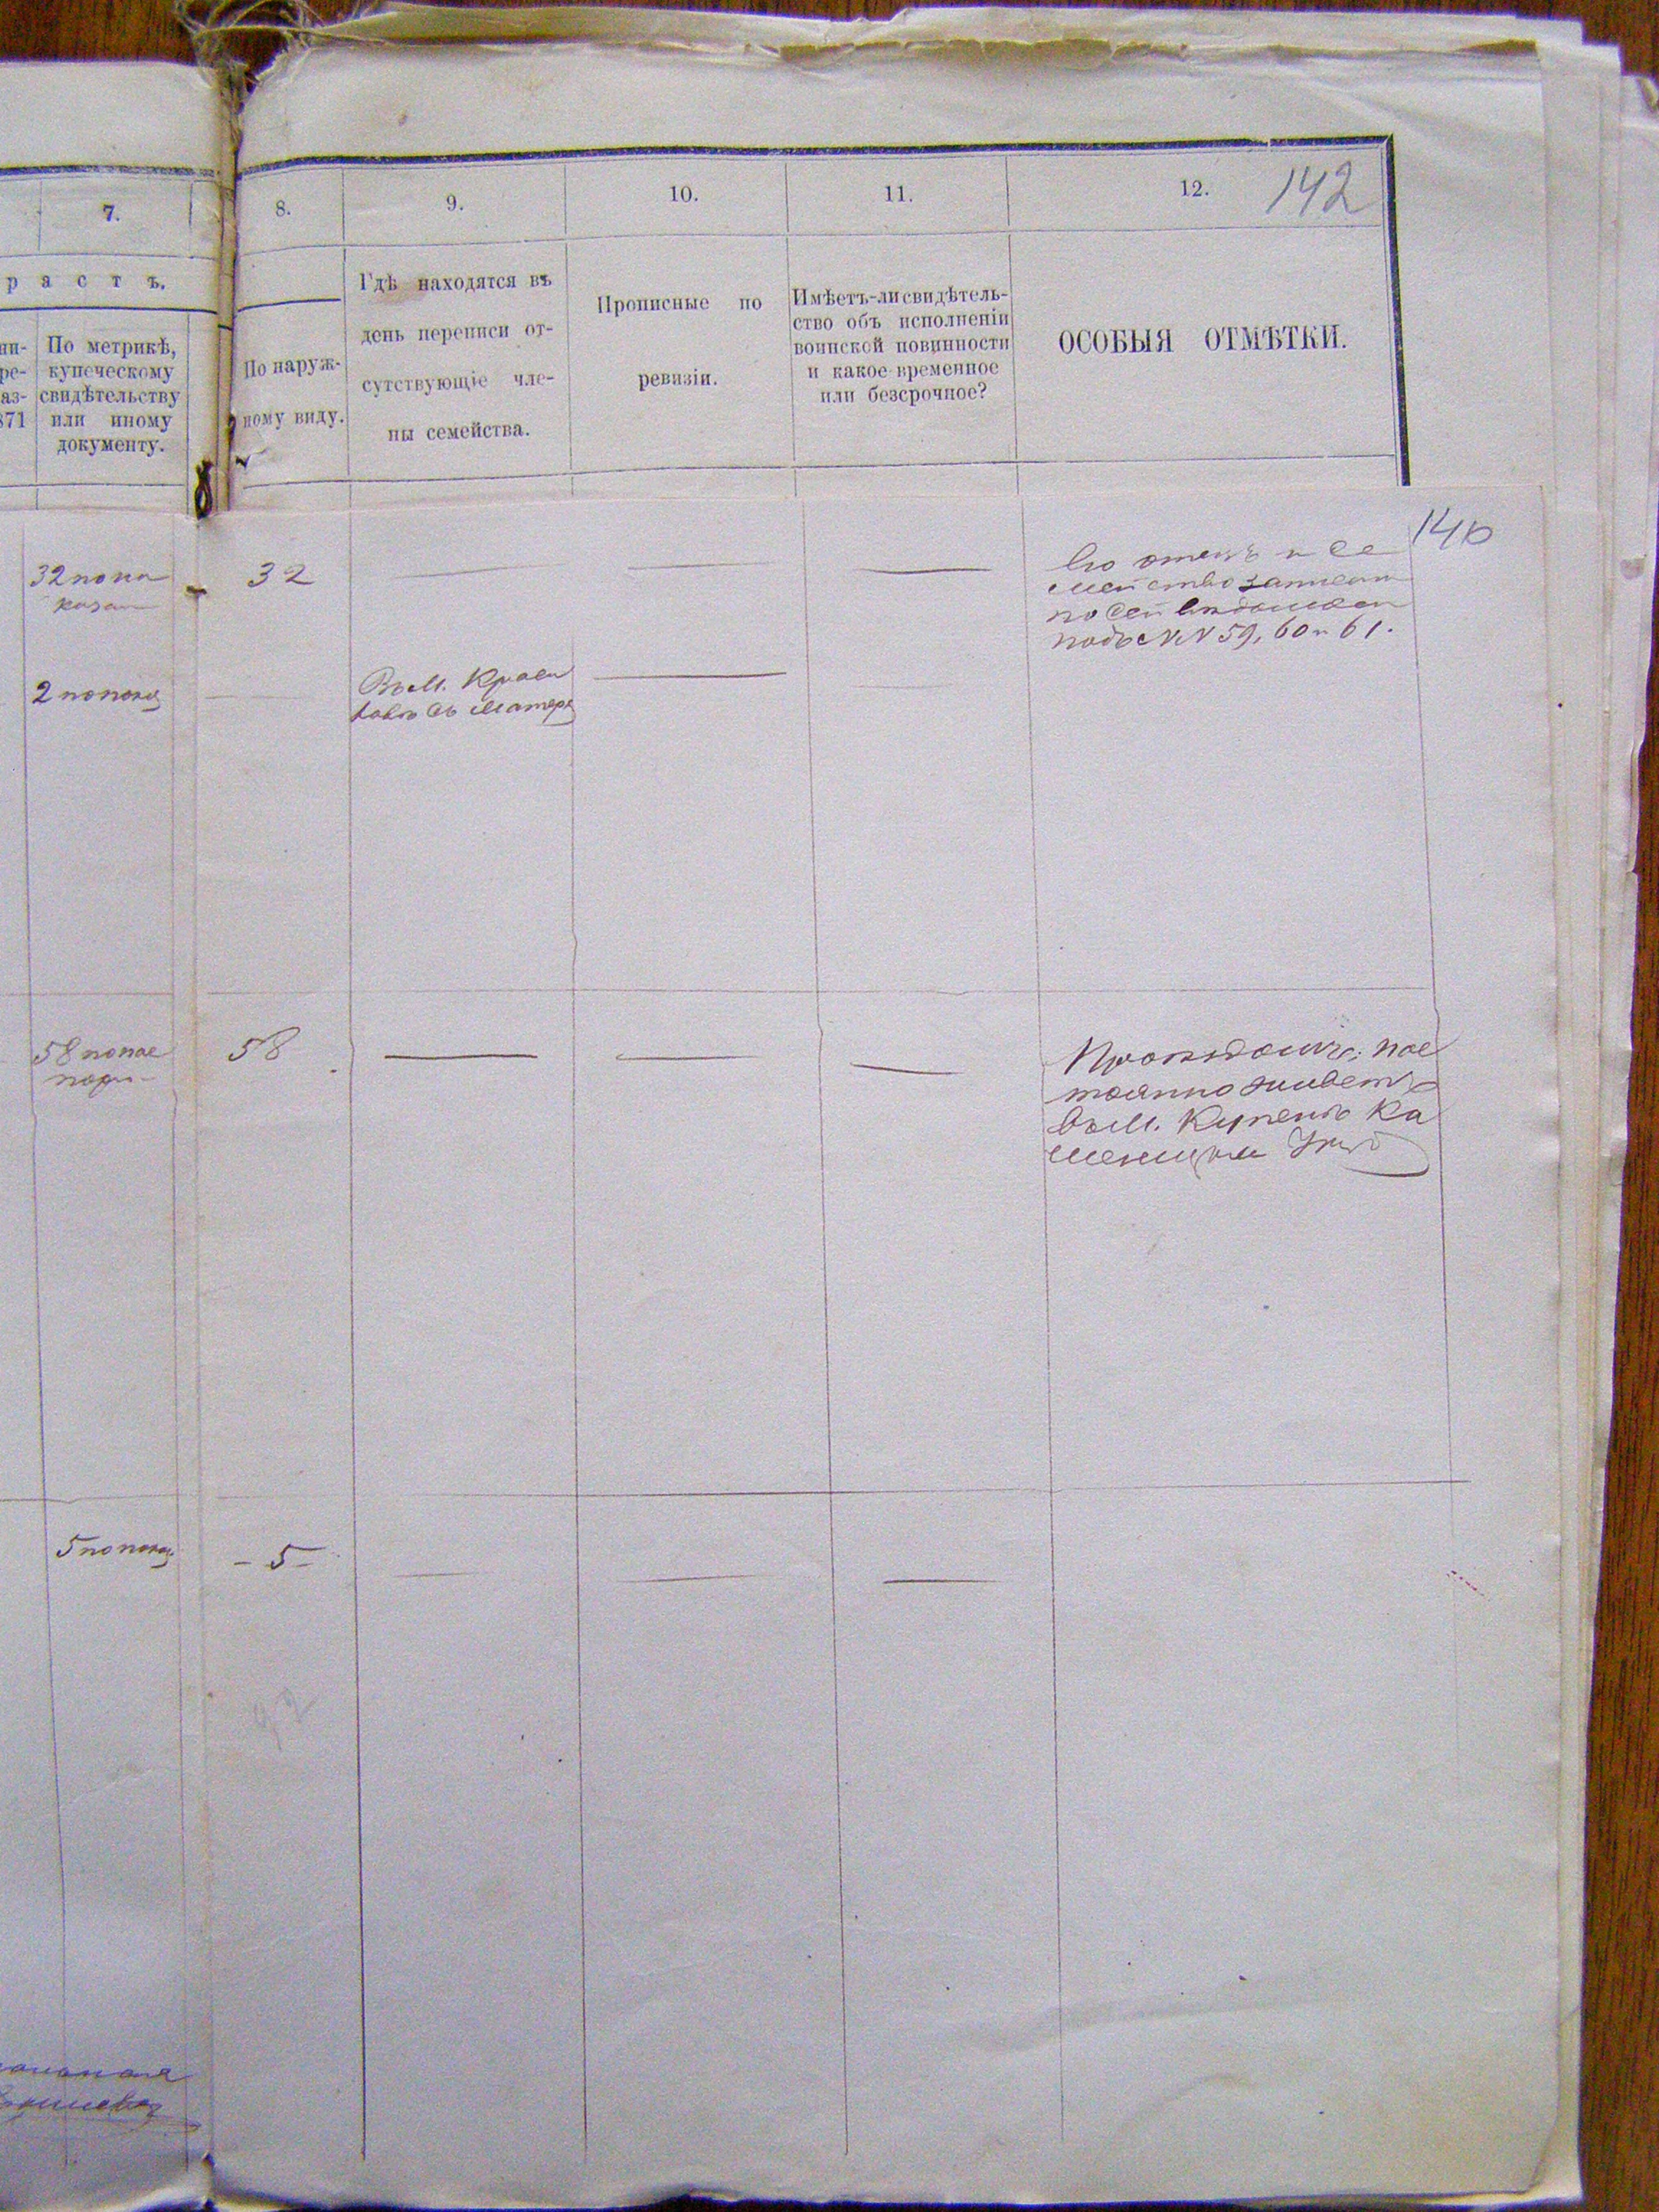 142
7.
8.
9.
10.
11.
12.
р а с т ъ.
По метрикѣ,
купеческому
свидѣтельству
или иному
документу.
ни-
ре-
аз-
871
По наруж-
ному виду.
Гдѣ находятся въ
день переписи от-
сутствующіе чле-
ны семейства.
Прописные по
ревизіи.
Имѣетъ-ли свидѣтель-
ство объ исполненіи
воинской повинности
и какое временное
или безсрочное?
ОСОБЫЯ ОТМѢТКИ.
140
32 по по
казан
32
Его отецъ и се
мейство записан
по сей вѣдомости
подъ №№ 59, 60 и 61.
2 по пока
Въ М. Краси
ловѣ съ матерью
58 по пас
порт
58
Проѣздомъ; пос
тоянно живетъ
въ М. Купенѣ Ка
менецкаго
5 по пока
- 5 -